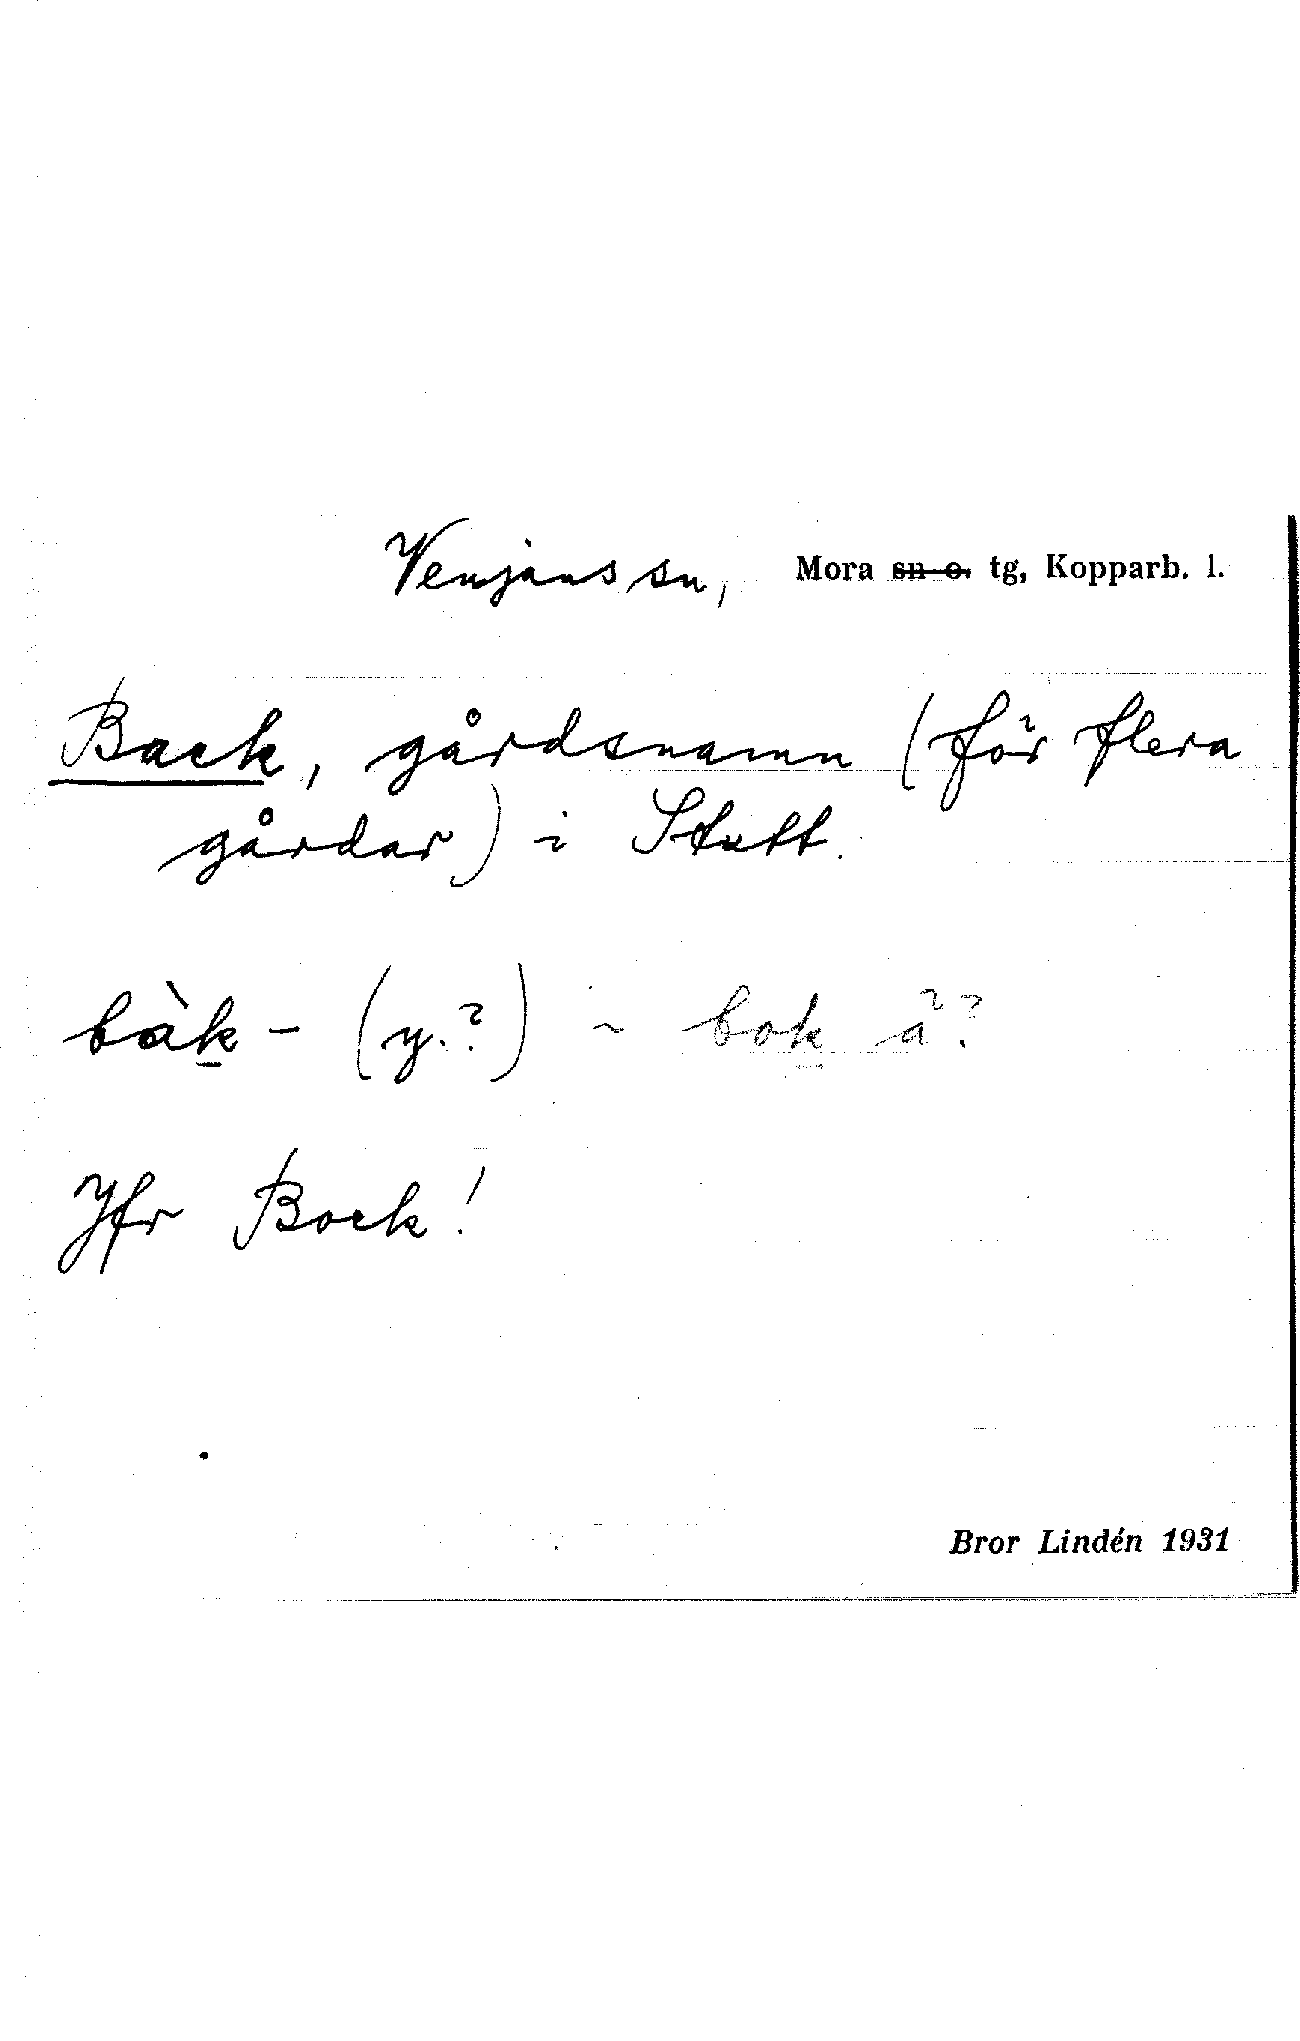 Venjans sn, Mora sn o. tg, Kopparb. l.
Back, gårdsnamn (för flera
gårdar) i Stutt.
bàk - (y.?) ~ bok å??
Jfr Bock!
Bror Lindén 1931